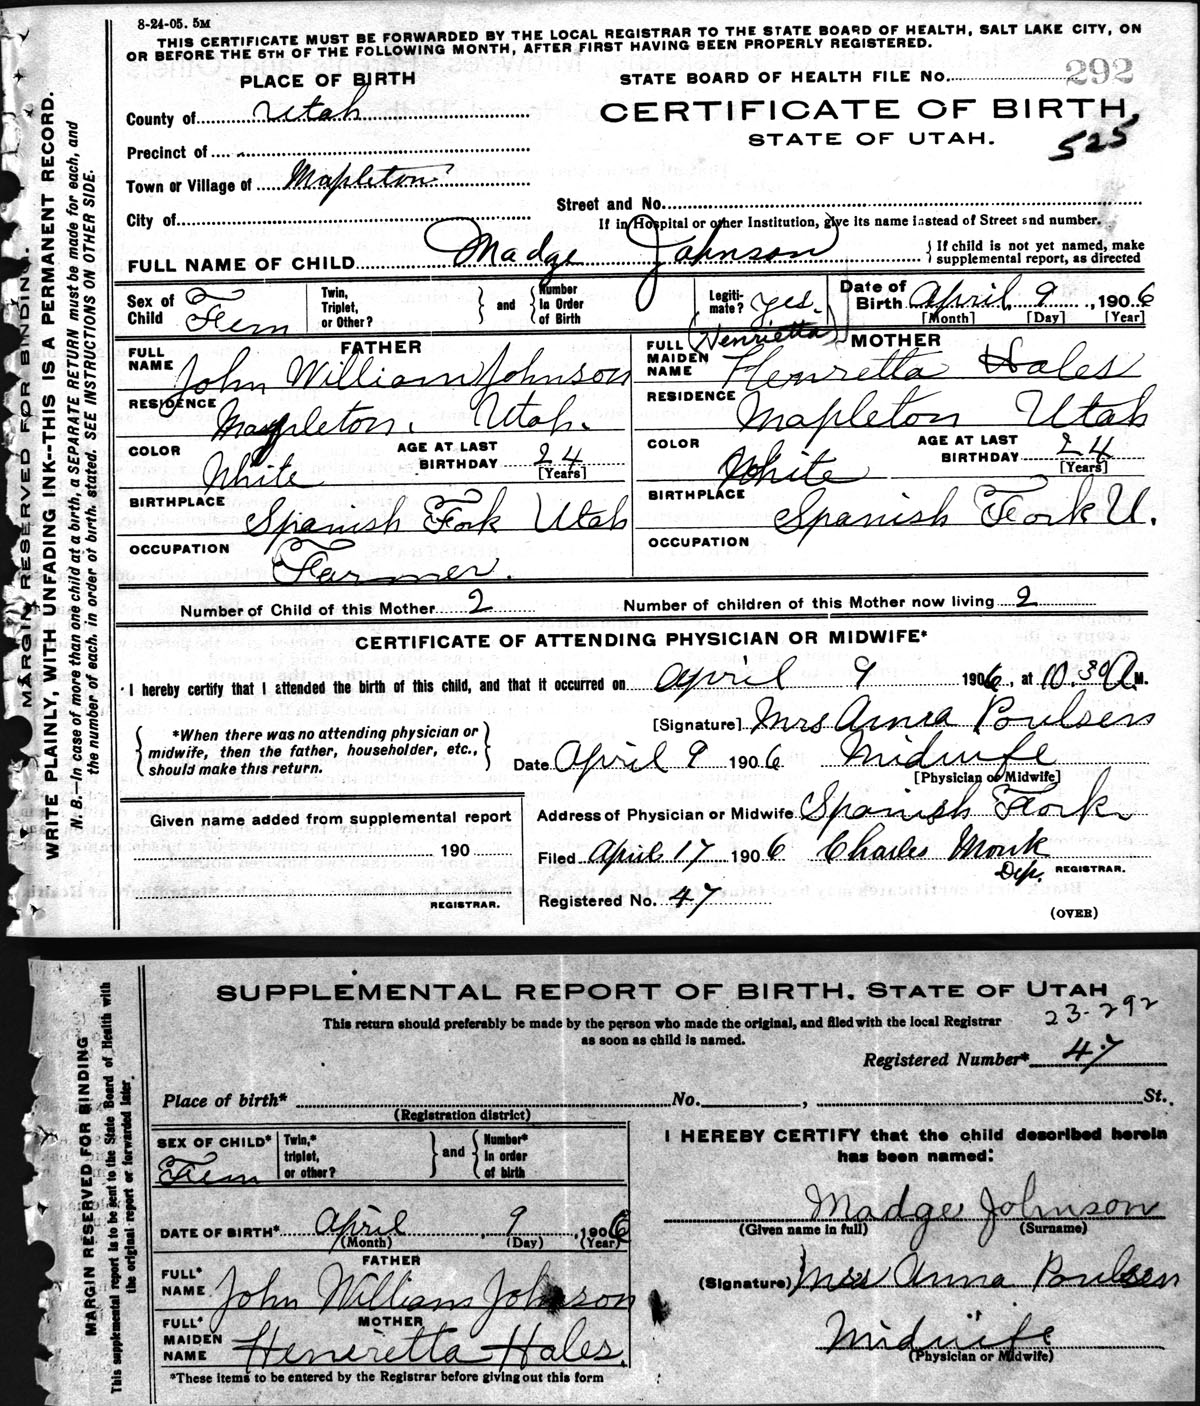 8-24-05. 5M
THIS CERTIFICATE MUST BE FORWARDED BY THE LOCAL REGISTRAR TO THE STATE BOARD OF HEALTH, SALT LAKE CITY, ON
OR BEFORE THE 5TH OF THE FOLLOWING MONTH, AFTER FIRST HAVING BEEN PROPERLY REGISTERED.
PLACE OF BIRTH
STATE BOARD OF HEALTH FILE No. 292
County of Utah
CERTIFICATE OF BIRTH,
STATE OF UTAH.
525
Precinct of
Town or Village of Mapleton
City of
Street and No.
If in Hospital or other Institution, give its name instead of Street and number.
FULL NAME OF CHILD Madge Johnson
} If child is not yet named, make supplemental report, as directed
Sex of Child Fem
Twin, Triplet, or Other?
} and { Number In Order of Birth
Legiti- mate? yes.
Date of Birth April 9, 1906
[Month] [Day] [Year]
FATHER
FULL NAME John William Johnson
RESIDENCE Mapleton. Utah.
COLOR White
AGE AT LAST BIRTHDAY 24
[Years]
BIRTHPLACE Spanish Fork Utah
OCCUPATION Farmer.
(Henrietta)
MOTHER
FULL MAIDEN NAME Henretta Hales
RESIDENCE Mapleton Utah
COLOR White
AGE AT LAST BIRTHDAY 24
[Years]
BIRTHPLACE Spanish Fork U.
OCCUPATION
Number of Child of this Mother 2
Number of children of this Mother now living 2
CERTIFICATE OF ATTENDING PHYSICIAN OR MIDWIFE*
I hereby certify that I attended the birth of this child, and that it occurred on April 9 1906, at 10.30 A M.
{ *When there was no attending physician or midwife, then the father, householder, etc., should make this return. }
[Signature] Mrs Anna Poulsen
Date April 9 1906 Midwife
[Physician or Midwife]
Given name added from supplemental report
190
REGISTRAR.
Address of Physician or Midwife Spanish Fork
Filed April 17 1906 Charles Monk
Dep. REGISTRAR.
Registered No. 47
(OVER)
MARGIN RESERVED FOR BINDING.
WRITE PLAINLY, WITH UNFADING INK--THIS IS A PERMANENT RECORD.
N. B.--In case of more than one child at a birth, a SEPARATE RETURN must be made for each, and
the number of each, in order of birth, stated. SEE INSTRUCTIONS ON OTHER SIDE.
SUPPLEMENTAL REPORT OF BIRTH. STATE OF UTAH
This return should preferably be made by the person who made the original, and filed with the local Registrar
as soon as child is named.
23-292
Registered Number* 47
Place of birth* No. , St.
(Registration district)
SEX OF CHILD* Fem
Twin,* triplet, or other?
} and { Number* in order of birth
DATE OF BIRTH* April 9, 1906
(Month) (Day) (Year)
FATHER
FULL* NAME John William Johnson
MOTHER
FULL* MAIDEN NAME Henrietta Hales.
*These items to be entered by the Registrar before giving out this form
I HEREBY CERTIFY that the child described herein
has been named:
Madge Johnson
(Given name in full) (Surname)
(Signature) Mrs Anna Poulsen
Midwife
(Physician or Midwife)
MARGIN RESERVED FOR BINDING
This supplemental report is to be sent to the State Board of Health with
the original report or forwarded later.